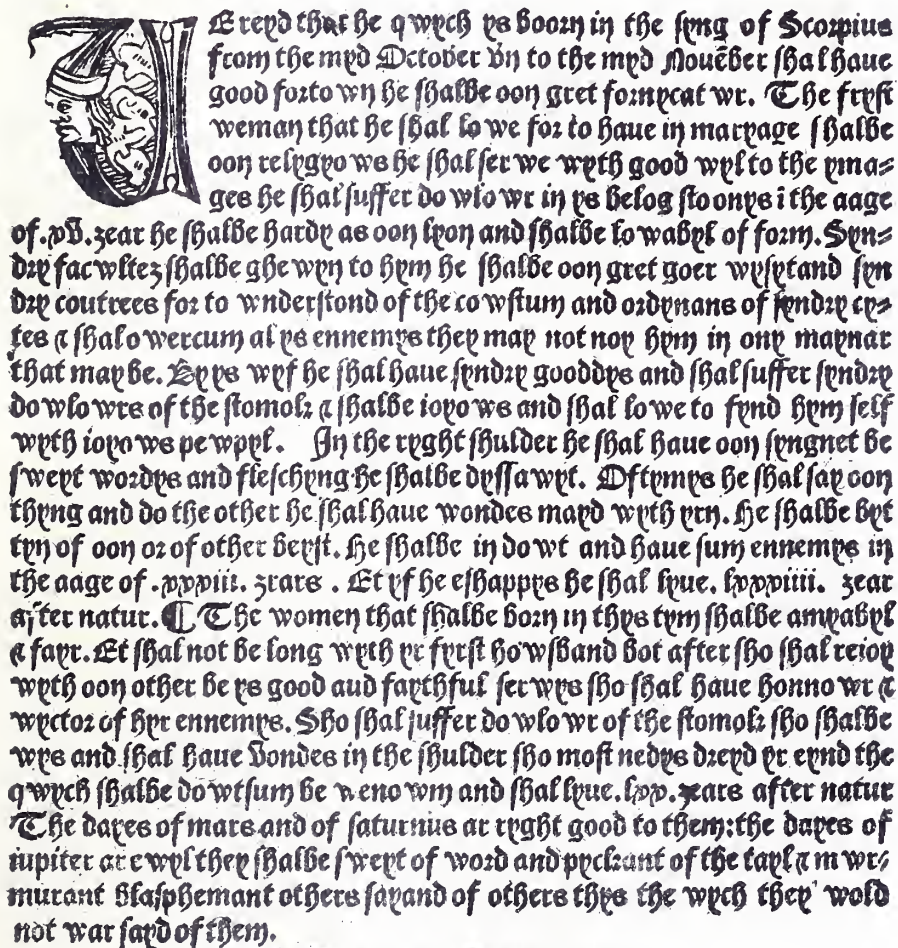 I E reyd that he qwych ys boorn in the syng of Scorpius
from the myd October vn to the myd Nouēber shal haue
good forto wn he shalbe oon gret fornycat wr. The fryst
weman that he shal lo we for to haue in maryage shalbe
oon relygyo ws he shal ser we wyth good wyl to the yma=
ges he shal suffer do wlo wr in ys belog stoonys ī the aage
of .xv. zear he shalbe hardy as oon lyon and shalbe lo wabyl of form. Syn=
dry facwltez shalbe ghe wyn to hym he shalbe oon gret goer wysytand syn
dry coutrees for to wnderstond of the co wstum and ordynans of syndry cy=
tes & shal o wercum al ys ennemys they may not noy hym in ony maynar
that may be. By ys wyf he shal haue syndry gooddys and shal suffer syndry
do wlo wrs of the stomok & shalbe ioyo ws and shal lo we to fynd hym self
wyth ioyo ws pe wpyl. In the ryght shulder he shal haue oon syngnet be
swept wordys and fleschyng he shalbe dyssa wyt. Oftymys he shal say oon
thyng and do the other he shal haue wondes mayd wyth yrn. He shalbe byt
tyn of oon or of other beyst. He shalbe in do wt and haue sum ennemys in
the aage of .xxxiii. zrars . Et yf he eshappys he shal lyue. lxxxiiii. zear
after natur. ¶ The women that shalbe born in thys tym shalbe amyabyl
& fayr. Et shal not be long wyth yr fyrst ho wsband bot after sho shal reioy
wyth oon other be ys good aud faythful ser wys sho shal haue honno wr &
wyctor of hyr ennemys. Sho shal suffer do wlo wr of the stomok sho shalbe
wys and shal haue vondes in the shulder sho most nedys dreyd yr eynd the
qwych shalbe do wtsum be weno wm and shal lyue. lxx. zears after natur
The dayes of mars and of saturnus ar ryght good to them: the dayes of
iupiter ar e wyl they shalbe sweyt of word and pyckant of the tayl & m wr=
murant blasphemant others sayand of others thys the wych they wold
not war sayd of them.